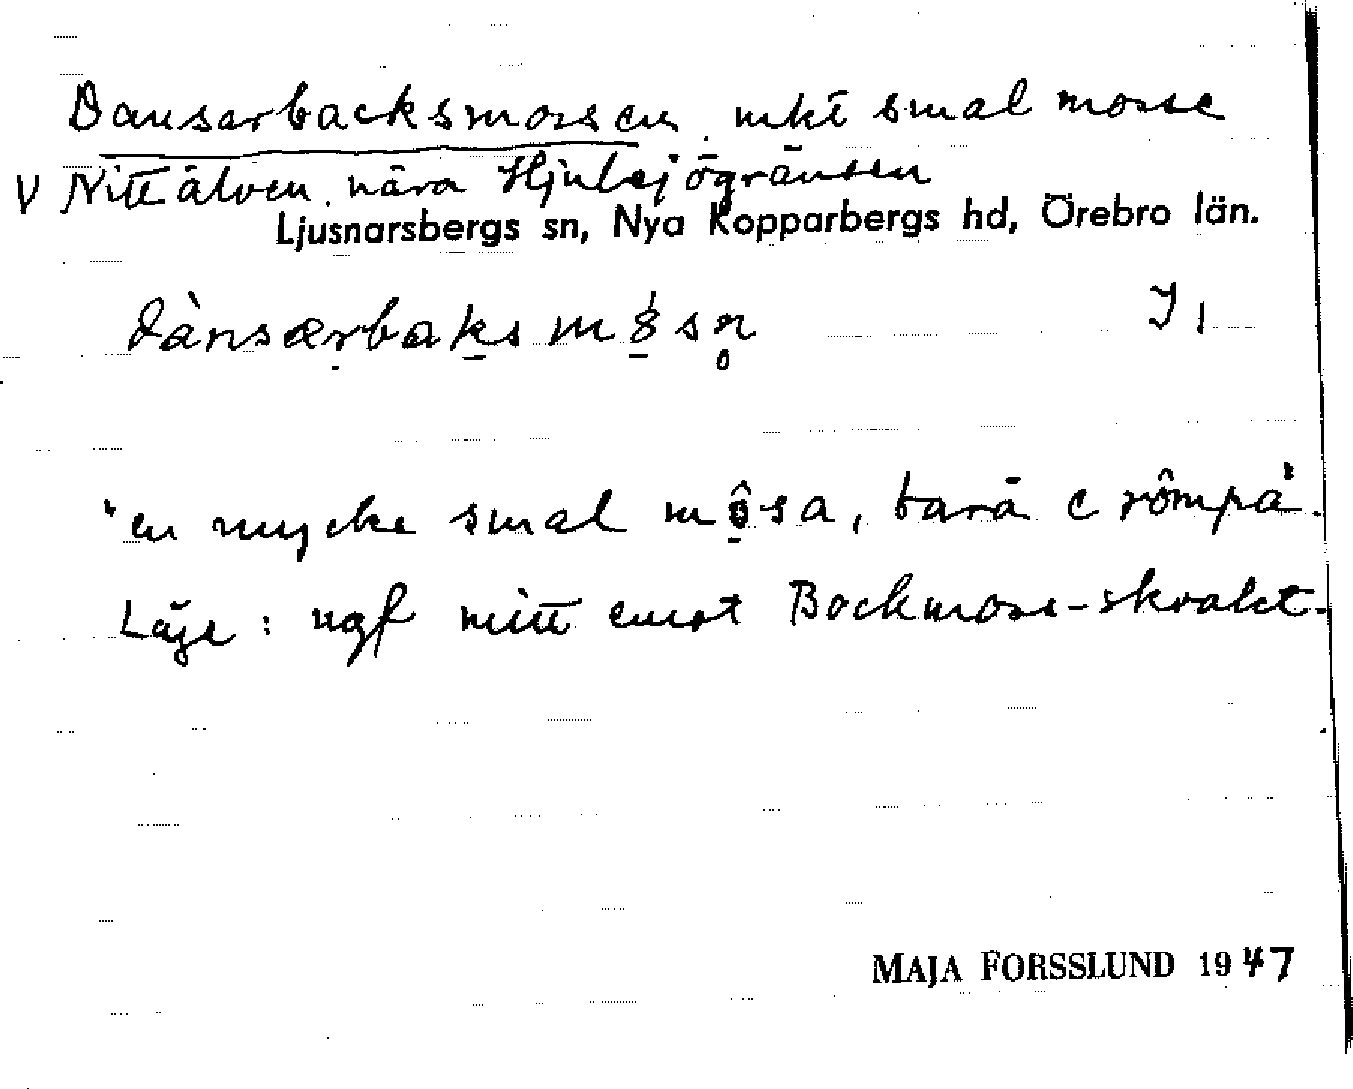 Dansarbacksmossen, mkt smal mosse
V Nittälven, nära Hjulsjögränsen
Ljusnarsbergs sn, Nya Kopparbergs hd, Örebro län.
dànsærbaksmósn̥ I 1
"en mycke smal môsa, bara e rômpa".
Läge: ngf mitt emot Bockmoss-skvalet.
MAJA FORSSLUND 1947